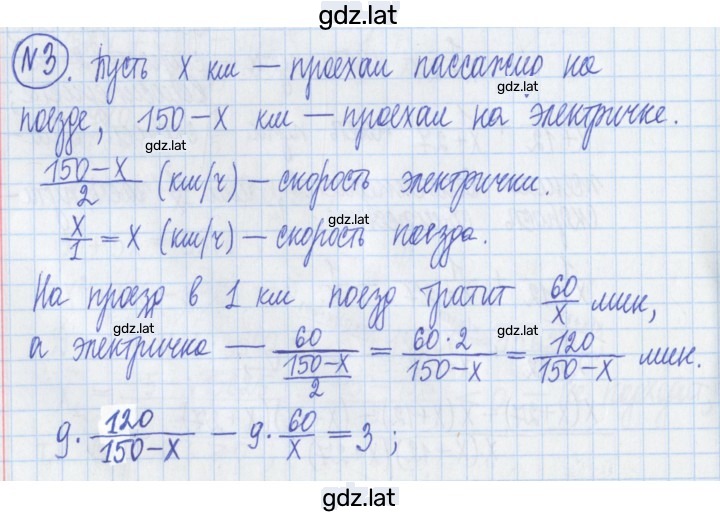 gdz.lat
№3. Пусть x км — проехал пассажир на
gdz.lat
поезде, 150-x км — проехал на электричке.
gdz.lat
(150-x)/2 (км/ч) — скорость электрички.
x/1 = x (км/ч) — скорость поезда.
gdz.lat
На проезд в 1 км поезд тратит 60/x мин,
gdz.lat gdz.lat
а электричка — 60/((150-x)/2) = (60·2)/(150-x) = 120/(150-x) мин.
9 · 120/(150-x) - 9 · 60/x = 3 ;
gdz.lat
gdz.lat